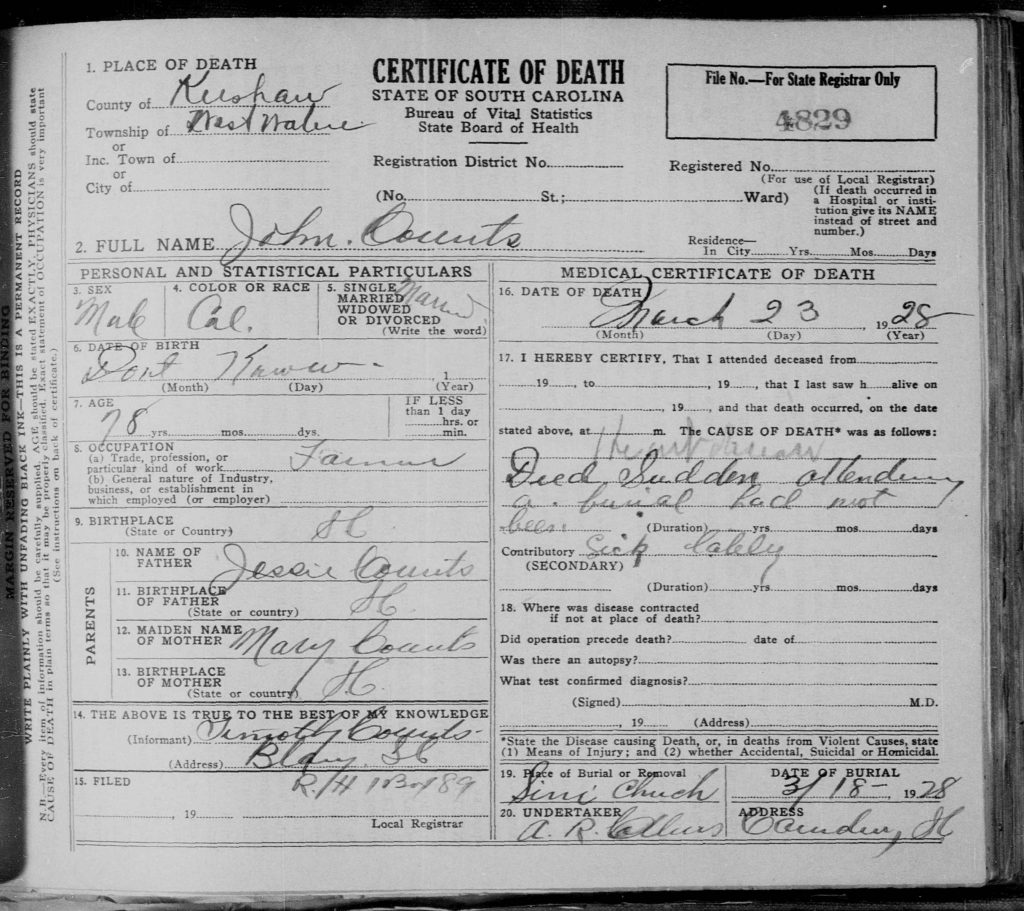 MARGIN RESERVED FOR BINDING
WRITE PLAINLY WITH UNFADING BLACK INK—THIS IS A PERMANENT RECORD
N. B.—Every item of information should be carefully supplied. AGE should be stated EXACTLY. PHYSICIANS should state
CAUSE OF DEATH in plain terms so that it may be properly classified. Exact statement of OCCUPATION is very important
(See instructions on back of certificate.)
1. PLACE OF DEATH
County of Kershaw
Township of West
or
Inc. Town of
or
City of
CERTIFICATE OF DEATH
STATE OF SOUTH CAROLINA
Bureau of Vital Statistics
State Board of Health
File No.—For State Registrar Only
4829
Registration District No.
Registered No.
(For use of Local Registrar)
(No. St.; Ward)
(If death occurred in
a Hospital or insti-
tution give its NAME
instead of street and
number.)
2. FULL NAME John. Counts
Residence—
In City Yrs. Mos. Days
PERSONAL AND STATISTICAL PARTICULARS
3. SEX
Male
4. COLOR OR RACE
Col.
5. SINGLE
MARRIED
WIDOWED
OR DIVORCED
(Write the word)
Married
6. DATE OF BIRTH
Dont Know
1
(Month) (Day) (Year)
7. AGE
78 yrs. mos. dys.
IF LESS
than 1 day
hrs. or
min.
8. OCCUPATION
(a) Trade, profession, or
particular kind of work Farmer
(b) General nature of Industry,
business, or establishment in
which employed (or employer)
9. BIRTHPLACE
(State or Country) SC
PARENTS
10. NAME OF
FATHER Jessie Counts
11. BIRTHPLACE
OF FATHER
(State or country) SC
12. MAIDEN NAME
OF MOTHER Mary Counts
13. BIRTHPLACE
OF MOTHER
(State or country) SC
14. THE ABOVE IS TRUE TO THE BEST OF MY KNOWLEDGE
(Informant) Timothy Counts
(Address) Blaney SC
15. FILED
19
Local Registrar
MEDICAL CERTIFICATE OF DEATH
16. DATE OF DEATH
March 23 1928
(Month) (Day) (Year)
17. I HEREBY CERTIFY, That I attended deceased from
19 , to , 19 , that I last saw h alive on
, 19 , and that death occurred, on the date
stated above, at m. The CAUSE OF DEATH* was as follows:
Heart
Died Sudden attending
a burial had not
been (Duration) yrs. mos. days
Contributory Sick Lately
(SECONDARY)
(Duration) yrs. mos. days
18. Where was disease contracted
if not at place of death?
Did operation precede death? date of
Was there an autopsy?
What test confirmed diagnosis?
(Signed) M.D.
, 19 (Address)
*State the Disease causing Death, or, in deaths from Violent Causes, state
(1) Means of Injury; and (2) whether Accidental, Suicidal or Homicidal.
19. Place of Burial or Removal
Church
DATE OF BURIAL
3/18- 1928
20. UNDERTAKER
A. R. Collins
ADDRESS
Camden, SC